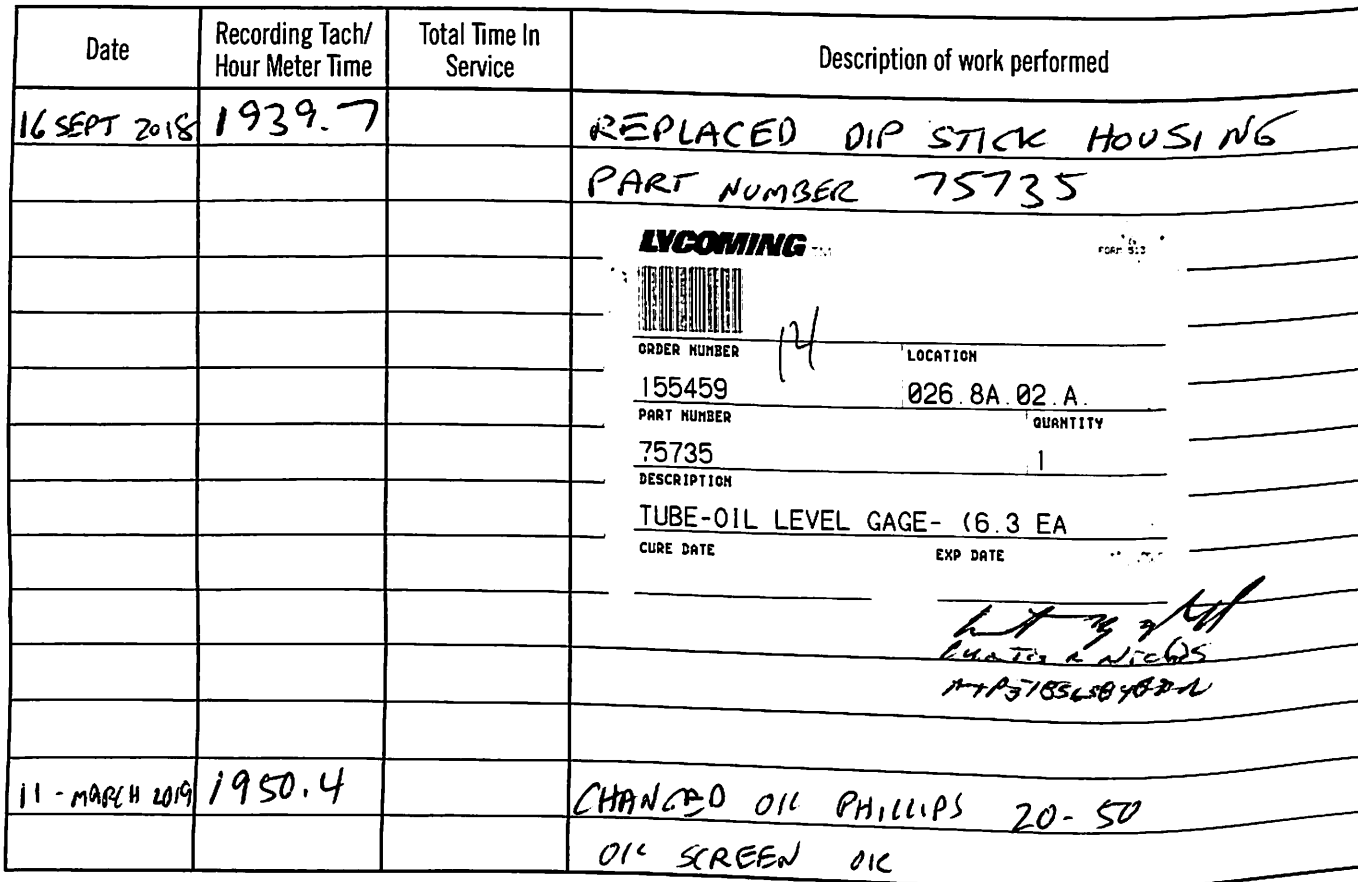 Date Recording Tach/ Hour Meter Time Total Time In Service Description of work performed
16 SEPT 2018 1939.7 REPLACED DIP STICK HOUSING
PART NUMBER 75735
LYCOMING
FORM 513
14
ORDER NUMBER LOCATION
155459 026.8A.02.A.
PART NUMBER QUANTITY
75735 1
DESCRIPTION
TUBE-OIL LEVEL GAGE- (6.3 EA
CURE DATE EXP DATE
11-MARCH 2019 1950.4 CHANGED OIL PHILLIPS 20-50
OIL SCREEN OK